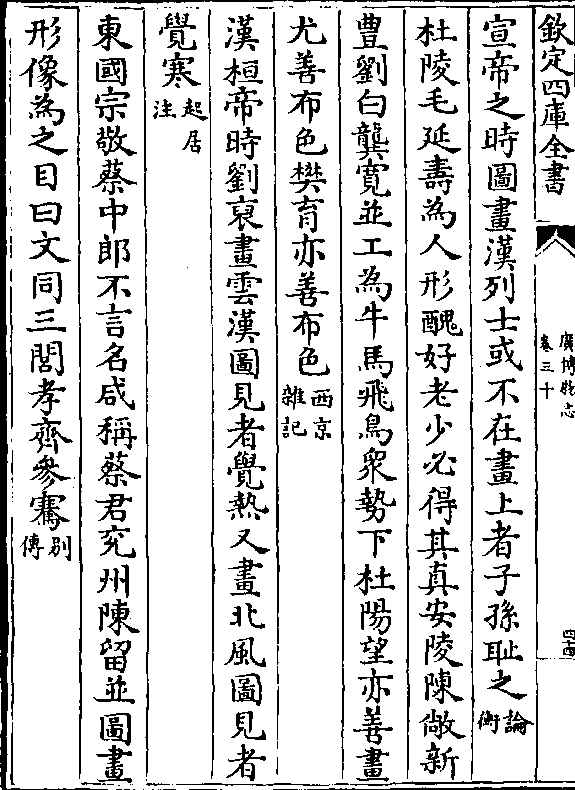 欽定四庫全書
廣博物志
卷三十
四十四
宣帝之時圖畫漢列士或不在畫上者子孫耻之論
衡
杜陵毛延壽為人形醜好老少必得其真安陵陳敞新
豐劉白龔寛並工為牛馬飛鳥衆勢下杜陽望亦善畫
尤善布色樊育亦善布色西京
雜記
漢桓帝時劉裒畫雲漢圖見者覺熱又畫北風圖見者
覺寒起居
注
東國宗敬蔡中郎不言名咸稱蔡君兖州陳留並圖畫
形像為之目曰文同三閭孝齊參騫别
傳